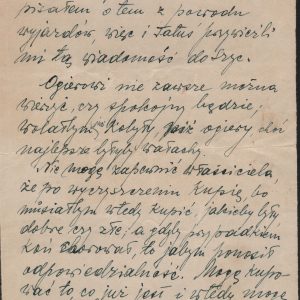 pisałem o tem z powodu
wyjazdów, więc i tatuś przywieźli
mi tą wiadomość do Tryc.
Ogierowi nie zawsze można
wierzyć, czy spokojny będzie;
wolałbym kobyły, ogiery do
najlepsze byłyby wałachy.
Nie mogę zapewnić właściciela
że po wyczyszczeniu kupię, bo
musiałbym wtedy kupić, jakieby były
dobre czy złe, a gdyby przypadkiem
koń chorował, to jabym ponosił
odpowiedzialność. Mogę kupo-
wać to, co już jest i wtedy mogę